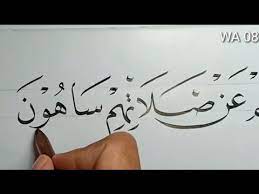 WA 08
عَنْ صَلَاتِهِمْ سَاهُوْنَ